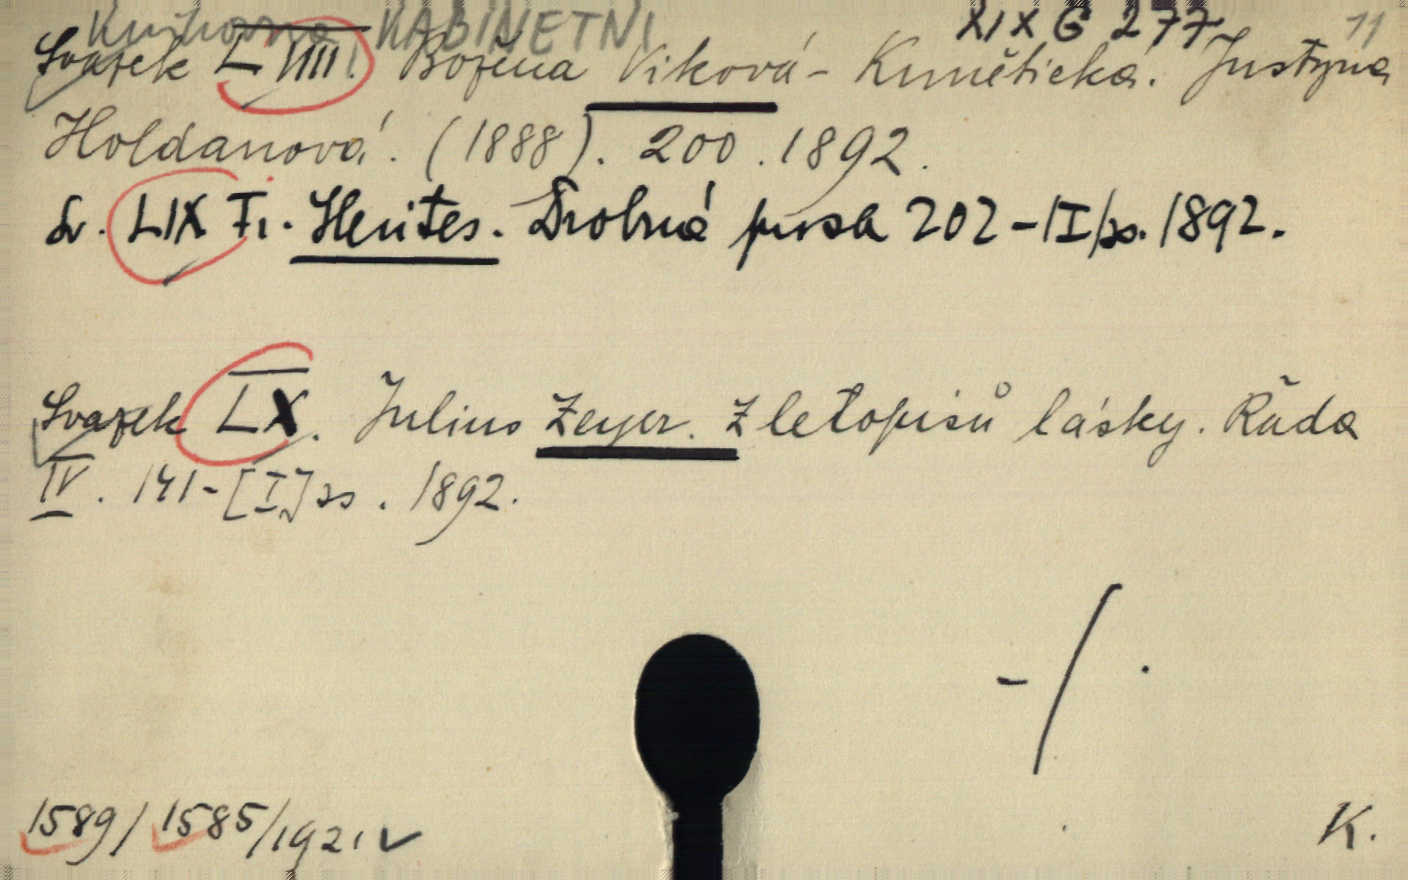 Knihovna KABINETNÍ XIX G 277 11
Svazek LVIII. Božena Viková-Kunětická. Justyna
Holdanová. (1888). 200. 1892.
Sv. LIX Fr. Herites. Drobná prosa 202-/I/ss. 1892.
Svazek LX. Julius Zeyer. Z letopisů lásky. Řada
IV. 141-[I] ss. 1892.
-/.
1589/1585/1921
K.